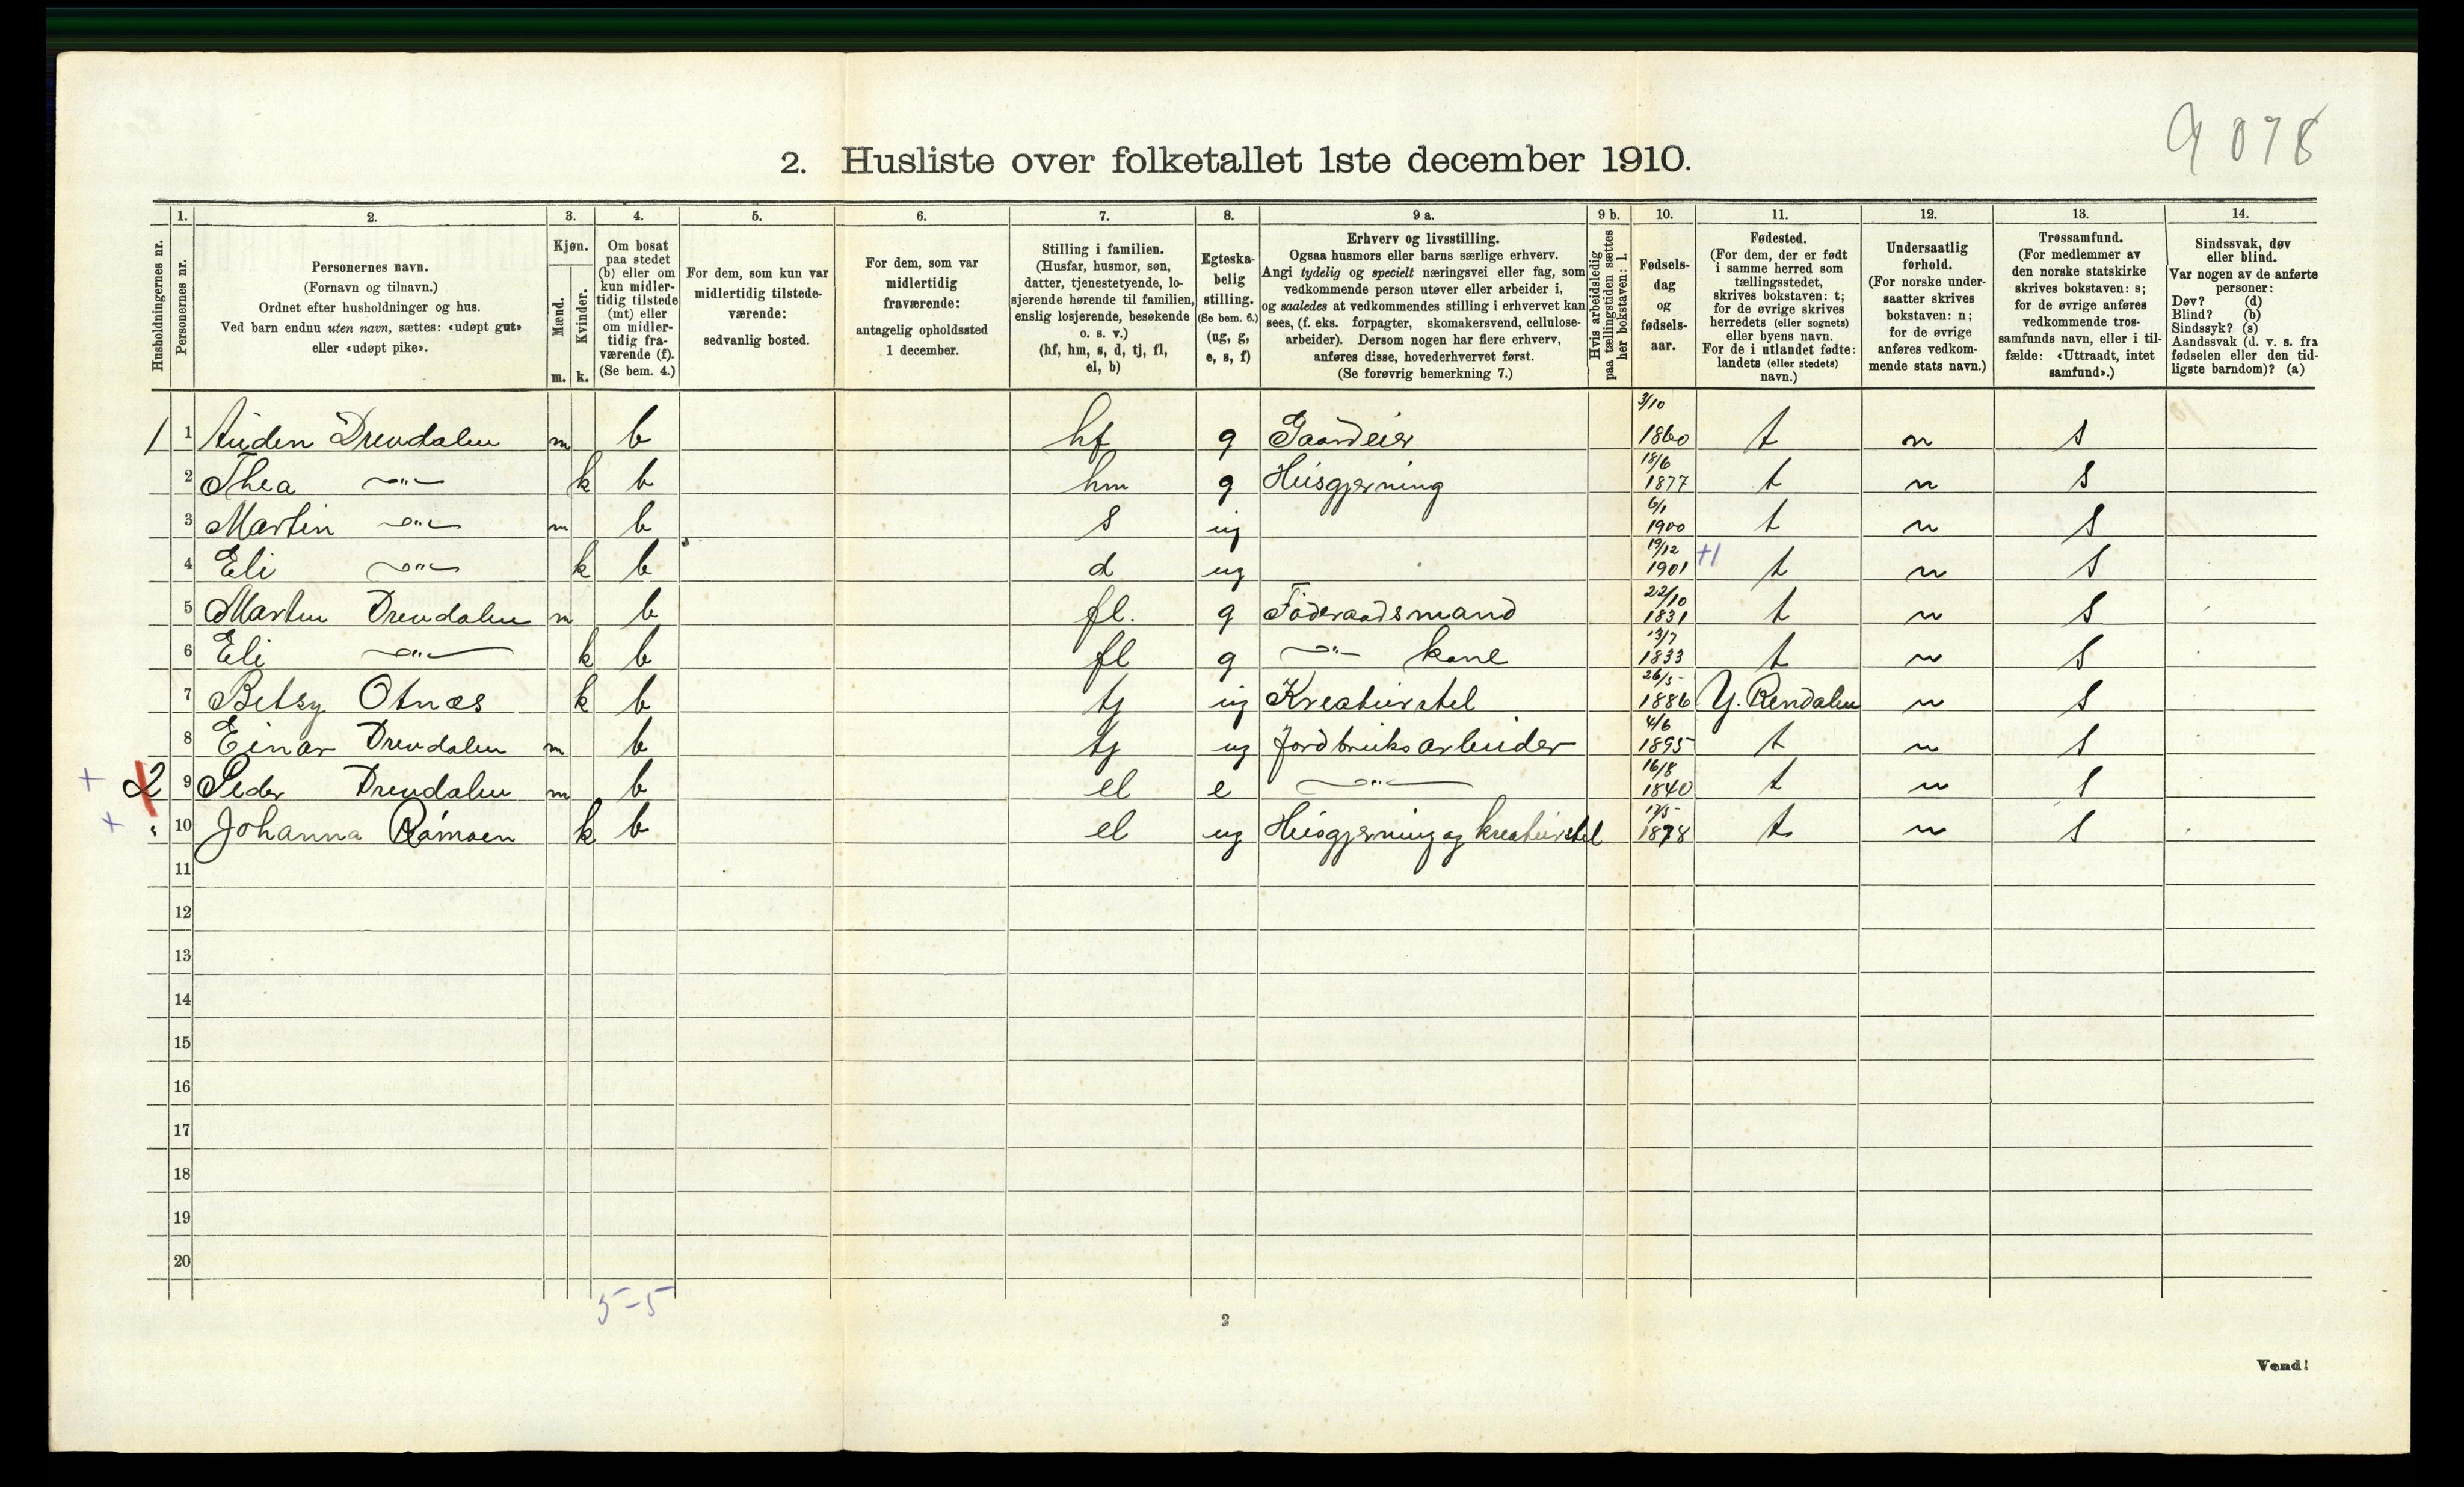 9078
2. Husliste over folketallet 1ste december 1910.
1. 2. 3. 4. 5. 6. 7. 8. 9 a. 9 b. 10. 11. 12. 13. 14.
Husholdningernes nr.
Personernes nr.
Personernes navn.
(Fornavn og tilnavn.)
Ordnet efter husholdninger og hus.
Ved barn endnu uten navn, sættes: «udøpt gut»
eller «udøpt pike».
Kjøn.
Mænd.
Kvinder.
m. k.
Om bosat
paa stedet
(b) eller om
kun midler-
tidig tilstede
(mt) eller
om midler-
tidig fra-
værende (f).
(Se bem. 4.)
For dem, som kun var
midlertidig tilstede-
værende:
sedvanlig bosted.
For dem, som var
midlertidig
fraværende:
antagelig opholdssted
1 december.
Stilling i familien.
(Husfar, husmor, søn,
datter, tjenestetyende, lo-
sjerende hørende til familien,
enslig losjerende, besøkende
o. s. v.)
(hf, hm, s, d, tj, fl,
el, b)
Egteska-
belig
stilling.
(Se bem. 6.)
(ug, g,
e, s, f)
Erhverv og livsstilling.
Ogsaa husmors eller barns særlige erhverv.
Angi tydelig og specielt næringsvei eller fag, som
vedkommende person utøver eller arbeider i,
og saaledes at vedkommendes stilling i erhvervet kan
sees, (f. eks. forpagter, skomakersvend, cellulose-
arbeider). Dersom nogen har flere erhverv,
anføres disse, hovederhvervet først.
(Se forøvrig bemerkning 7.)
Hvis arbeidsledig
paa tællingstiden sættes
her bokstaven: l.
Fødsels-
dag
og
fødsels-
aar.
Fødested.
(For dem, der er født
i samme herred som
tællingsstedet,
skrives bokstaven: t;
for de øvrige skrives
herredets (eller sognets)
eller byens navn.
For de i utlandet fødte:
landets (eller stedets)
navn.)
Undersaatlig
forhold.
(For norske under-
saatter skrives
bokstaven: n;
for de øvrige
anføres vedkom-
mende stats navn.)
Trossamfund.
(For medlemmer av
den norske statskirke
skrives bokstaven: s;
for de øvrige anføres
vedkommende tros-
samfunds navn, eller i til-
fælde: «Uttraadt, intet
samfund».)
Sindssvak, døv
eller blind.
Var nogen av de anførte
personer:
Døv? (d)
Blind? (b)
Sindssyk? (s)
Aandssvak (d. v. s. fra
fødselen eller den tid-
ligste barndom)? (a)
1 1 Auden Drevdalen m b hf g Gaardeier 3/10 1860 t n s
2 Thea —"— k b hm g Husgjerning 18/6 1877 t n s
3 Martin —"— m b s ug 6/1 1900 t n s
4 Eli —"— k b d ug 19/12 1901 +1 t n s
5 Martin Drevdalen m b fl. g Föderaadsmand 22/10 1831 t n s
6 Eli —"— k b fl g —"— kone 13/7 1833 t n s
7 Betsy Otnæs k b tj ug Kreaturstel 26/5 1886 Y. Rendalen n s
8 Einar Drevdalen m b tj ug Jordbruksarbeider 4/6 1895 t n s
+ 2 9 Peder Drevdalen m b el e —"— 16/8 1840 t n s
+ 10 Johanna Römoen k b el ug Husgjerning og kreaturstel 17/5 1878 t n s
11
12
13
14
15
16
17
18
19
20
5-5
2
Vend!